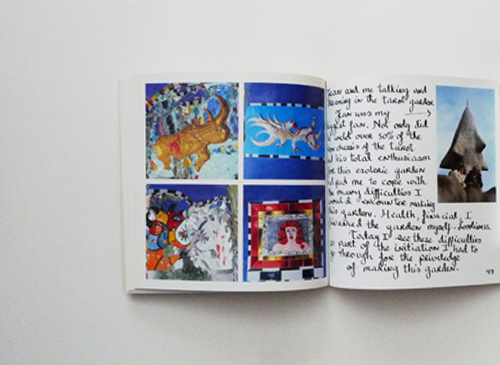 and me talking and
in the tarot garden
Jean was my
fan. Not only did
over 50% of the
chassis of the tarot
his total enthusiasm
this esoteric garden
me to cope with
many difficulties I
encounter making
garden. Health, financial, I
the garden myself. Loneliness.
Today I see these difficulties
part of the initiation I had to
through for the priviledge
of making this garden.
49